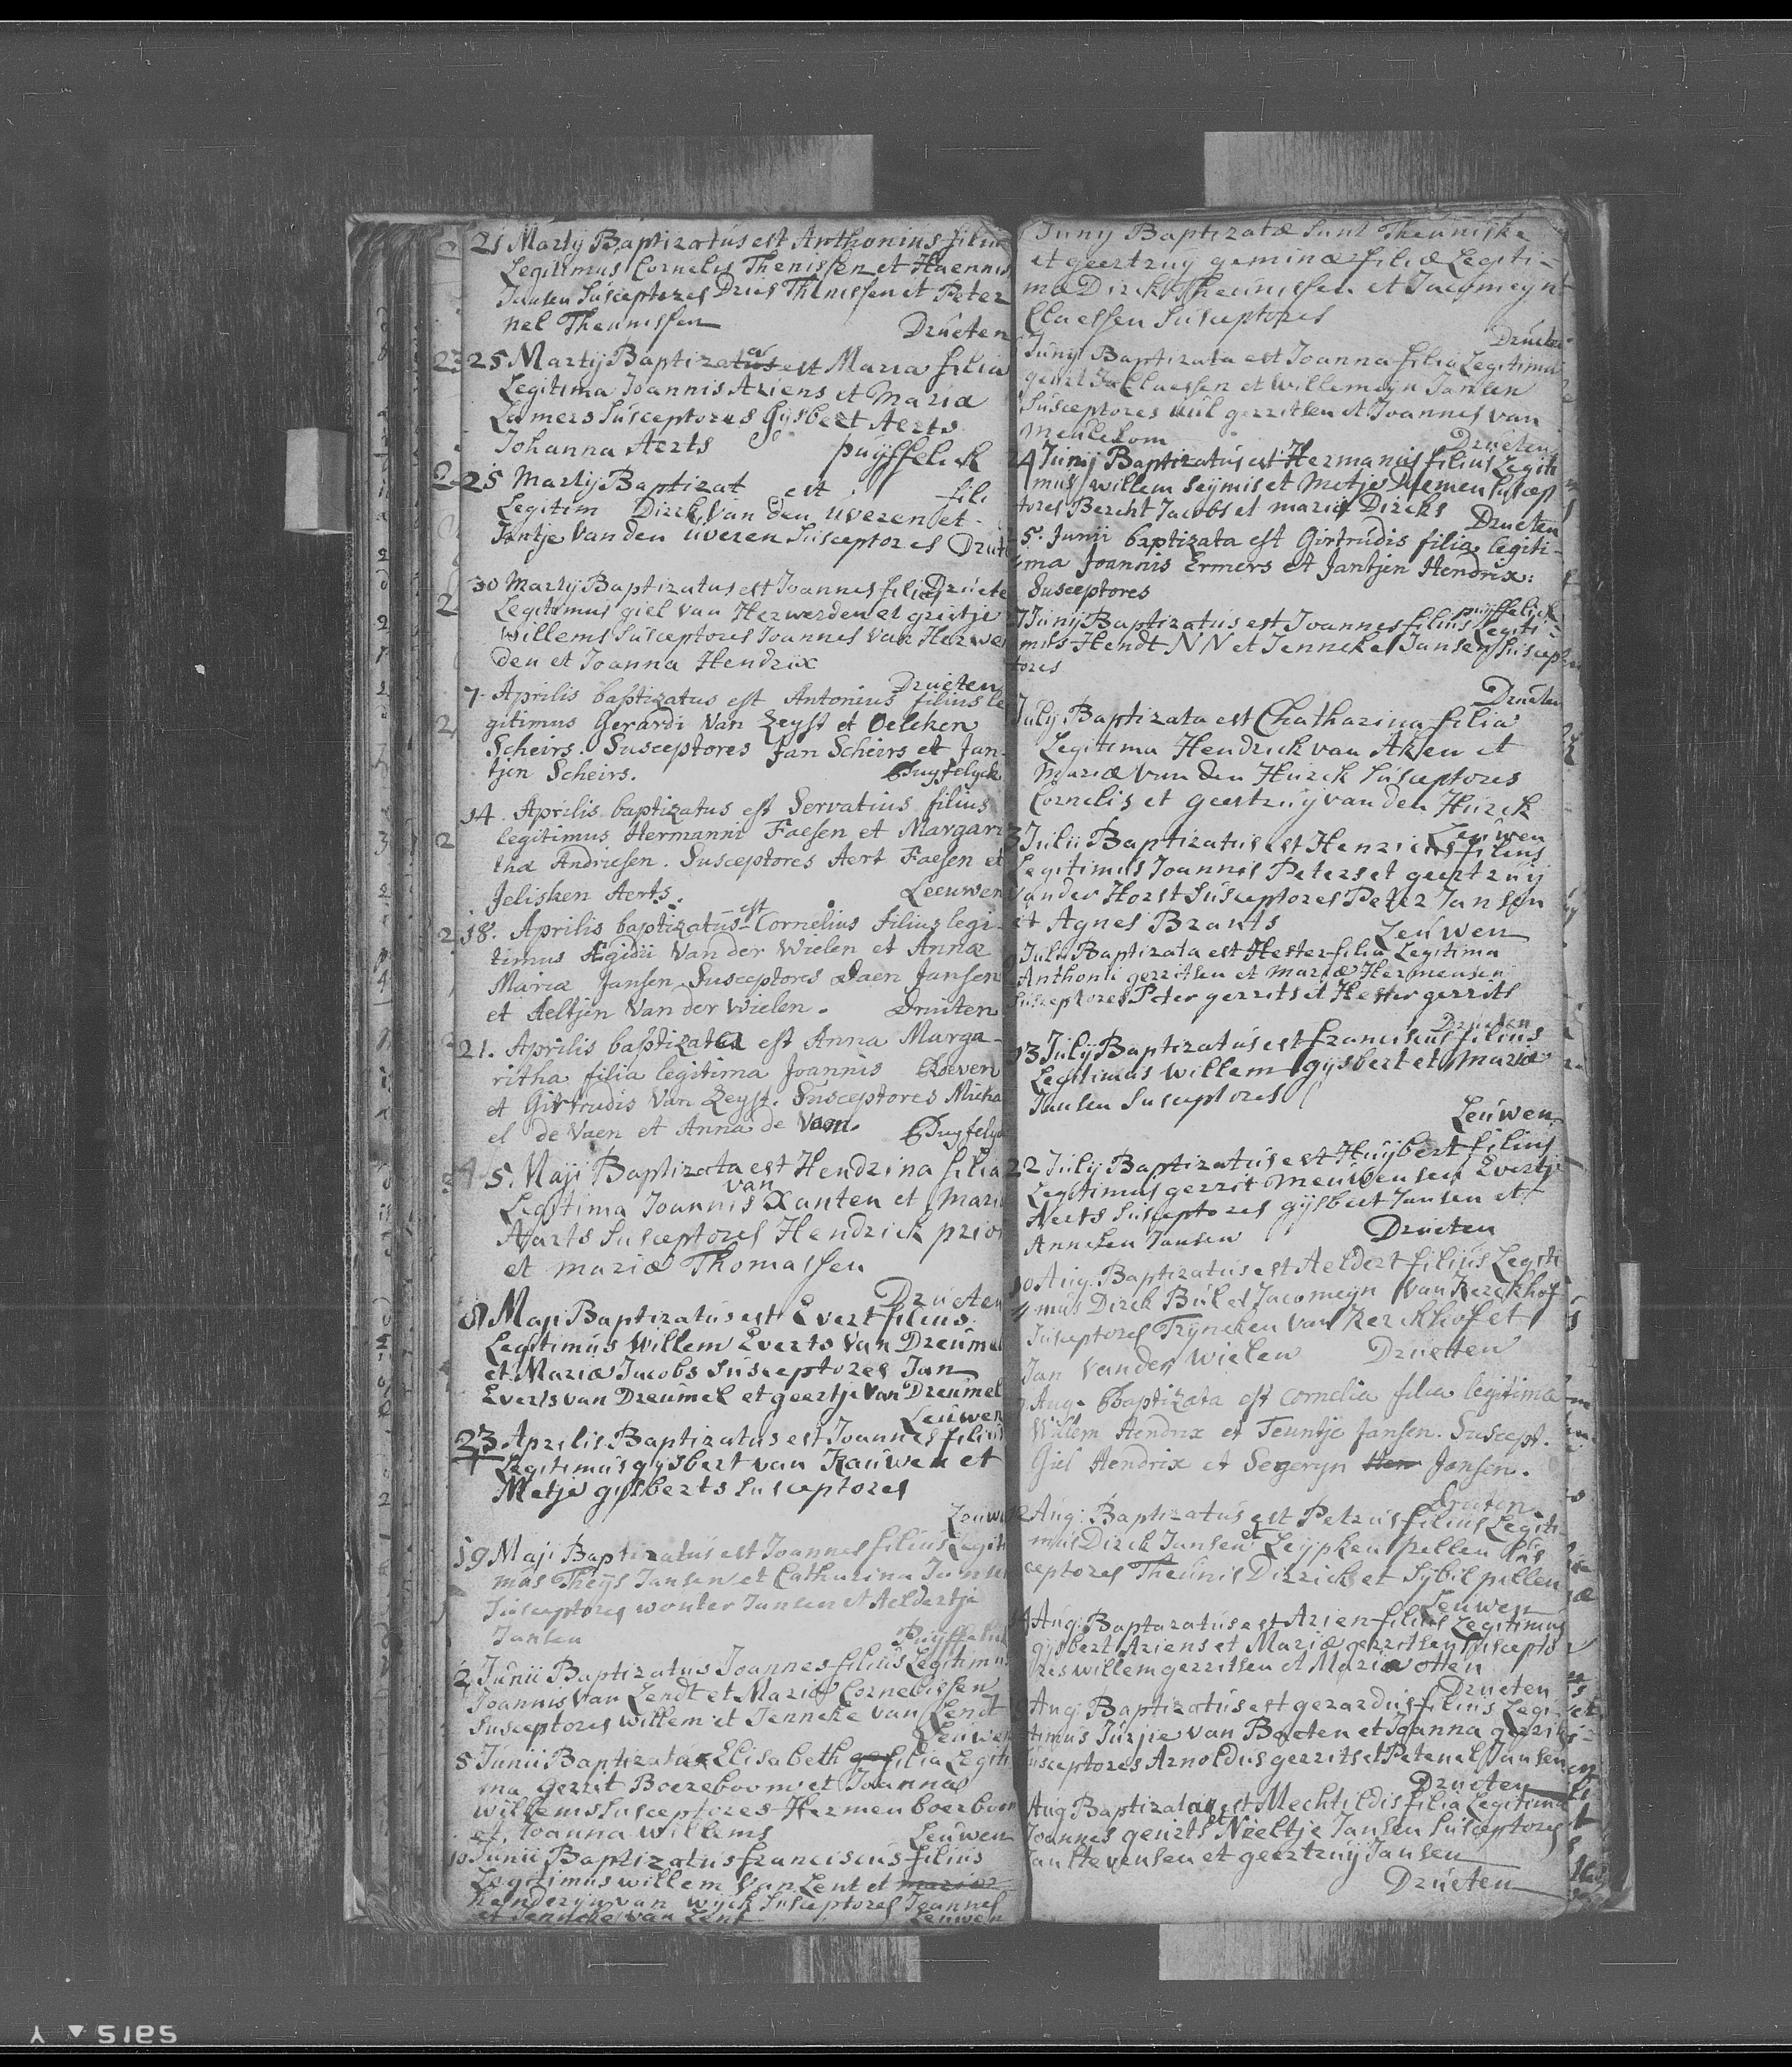 21 Martij Baptizatus est Anthonius filius
Legitimus Cornelis Thenissen et Haennis
Jansen Susceptores Dries Thenissen et Peter
nel Theunissen Drueten
25 Martij Baptizatus a est Maria filia
Legitima Joannis Ariens et Mariæ
Lamers Susceptores Gijsbert Aerts
Johanna Aerts puijffelick
25 Martij Baptizat est fili
Legitim Dirck Van den uveren et
Jantje Van den uveren Susceptores Drut
30 Martij Baptizatus est Joannes filius Druete
Legitimus giel van Herwerden et grietje
Willems Susceptores Joannes Van Herwer
den et Joanna Hendrix
Drueten
7. Aprilis baptizatus est Antonius filius le
gitimus Gerardi Van Zeyst et Oelcken
Scheirs. Susceptores Jan Scheirs et Jan-
tjen Scheirs. Puyfelyck
14. Aprilis baptizatus est Servatius filius
legitimus Hermanni Faesen et Margari
thæ Andriesen. Susceptores Aert Faesen et
Jelisken Aerts. Leeuwen
18. Aprilis baptizatus est Cornelius filius legi-
timus Ægidii Van der Wielen et Annæ
Mariæ Jansen Susceptores Daen Jansen
et Aeltjen Van der Wielen. Druten
21. Aprilis baptizata est Anna Marga-
ritha filia legitima Joannis Roeven
et Girtrudis Van Zeyst. Susceptores Micha
el de Vaen et Anna de Vaen. Puyfelyc
5. Maji Baptizata est Hendrina filia
Legitima Joannis van Xanten et Mari
Aarts Susceptores Hendrick prior
et mariæ Thomassen
Drueten
8 Maji Baptizatus est Evert filius
Legitimus Willem Everts Van Dreumel
et Mariæ Jacobs Susceptores Jan
Everts van Dreumel et geertje Van Dreumel
Leuwen
23 Aprilis Baptizatus est Joannes filius
Legitimus gijsbert van Kauwen et
Metje gijsberts Susceptores
Leuwe
19 Maji Baptizatus est Joannes filius Legiti
mus Theijs Jansen et Catharina Janse
Susceptores wouter Jansen et Aeldertje
Jansen Puijffelick
2 Junii Baptizatus Joannes filius Legitimus
Joannis Van Lendt et Mariæ Cornelissen
Susceptores Willem et Jenneke van Lendt
Leuwen
5 Junii Baptizata Elisabeth ge filia Legiti
ma Gerrit Boereboom et Joanna
Willems Susceptores Hermen boerboom
et Joanna Willems Leuwen
10 Junii Baptizatus franciscus filius
Legitimus willem Van Lent et mariæ
henderijn van wijck Susceptores Joannes
et Jenneke van Lent Leuwen
Junij Baptizatæ sunt Theuniske
et geertruij geminæ filiæ Legiti-
mæ Dirck Theunissen et Jacomeijn
Claessen Susceptores
Drueten
Junij Baptizata est Joanna filia Legitima
geurt Claessen et Willemeijn Jansen
Susceptores wil gerritsen et Joannes van
Meulekom Drueten
24 Junij Baptizatus est Hermanus filius Legiti
mus willem seijmis et Metje Diemen Suscep
tores Berent Jacobs et maria Dircks Drueten
5. Junii baptizata est Girtrudis filia legiti-
ma Joannis Ermers et Jantjen Hendrix:
Susceptores
puijffelick
27 Junij Baptizatus est Joannes filius Legiti-
mus Hendt NN et Jenneke Jansen Suscep
tores
Drueten
Julij Baptizata est Chatharina filia
Legitima Hendrick van Aken et
Mariæ van den Hurck Susceptores
Cornelis et geertruij van den Hurck
Leuwen
3 Julii Baptizatus est Henricus filius
Legitimus Joannis Peters et geertruij
Vander Horst Susceptores Peter Jansen
et Agnes Brants Leuwen
Julii Baptizata est Hester filia Legitima
Anthonii gerritsen et mariæ Hermensen
Susceptores Peter gerrits et Hester gerrits
Drueten
13 Julij Baptizatus est franciscus filius
Legitimus willem gijsbert et Mariæ
Jansen Susceptores
Leuwen
22 Julij Baptizatus est Huijbert filius
Legitimus gerrit Meuwensen Evertje
Aerts Susceptores gijsbert Jansen et
Anneken Jansen Drueten
10 Aug. Baptizatus est Aeldert filius Legiti
mus Dirck Bul et Jacomeijn Van Kerckhof
Susceptores Trijncken van Kerckhof et
Jan Vander Wielen Druetten
Aug. Baptizata est Cornelia filia legitima
Willem Hendrix et Teuntje Jansen. Suscept.
Giel Hendrix et Segeryn Hen Jansen.
Druten
12 Aug: Baptizatus est Petrus filius Legiti
mus Dirck Jansen et Leijpken pellen Sus
ceptores Theunis Dirricks et Sybil pellen
Leuwen
14 Aug: Baptazatus est Arien filius Legitimus
gijsbert Ariens et Mariæ gerritsen Suscepto
res willem gerritsen et Maria otten
Drueten
Aug Baptizatus est gerardus filius Legi-
timus Jurjie van Bocten et Joanna gerrits
Susceptores Arnoldus gerrits et Petenel Jansen
Drueten
Aug Baptizata est Mechtildis filia Legitima
Joannes geurts et Neeltje Jansen Susceptores
Jan Stevensen et geertruij Jansen
Drueten
5195